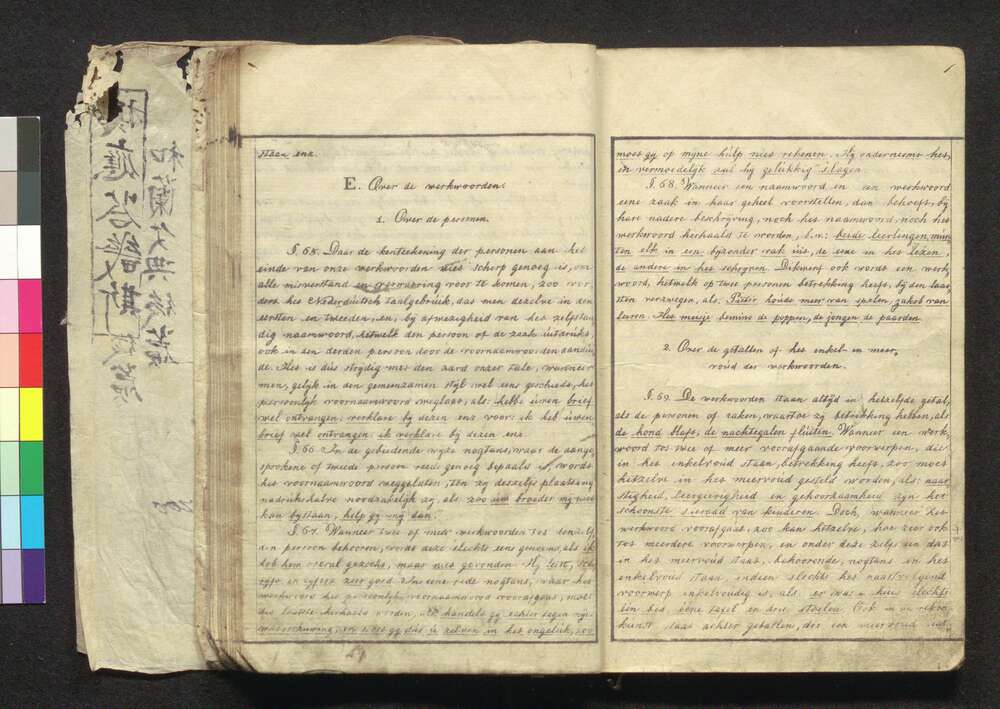 staan enz.
E. Over de werkwoorden.
1. Over de personen.
§. 65. Daar de kenteekening der personen aan het
einde van onze werkwoorden niet scherp genoeg is, om
alle misverstand en verwarring voor te komen, zoo vor,,
dert het Nederduitsch taalgebruik, dat men dezelve in den
eersten en tweeden, en, by afwezigheid van het zelfstan,,
dig naamwoord, hetwelk den persoon of de zaak uitdrukt,
ook in den derden persoon door de voornaamwoorden aandui,,
de. Het is dus strydig met den aard onzer tale, wanneer
men, gelyk in den gemeenzamen styl wel eens geschiedt, het
persoonlyk voornaamwoord weglaat, als: hebbe uwen brief
wel ontvangen. verklare by dezen enz. voor: ik heb uwen
brief wel ontvangen. ik verklare by dezen enz.
§. 66. In de gebiedende wyze nogtans, waar de aange,,
sprokene of tweede persoon reeds genoeg bepaald is, wordt
het voornaamwoord weggelaten, ten zy deszelfs plaatsing
nadrukshalve noodzakelyk zy, als zoo uw broeder my niet
kan bystaan, help gy my dan.
§. 67. Wanneer twee of meer werkwoorden tot denzelf,,
den persoon behooren, wordt deze slechts eens genoemd, als ik
heb hem overal gezocht, maar niet gevonden. Hy leest, sch
ryft en cyfert zeer goed. In eene rede nogtans, waar het
werkwoord het persoonlyk voornaamwoord voorafgaat, moet
dit laatste herhaald worden, als handelt gy echter tegen myne
waarschuwing, en steekt gy dus u zelven in het ongeluk, zoo
moet gy op myne hulp niet rekenen. Hy onderneemt het,
en vermoedelyk zal hy gelukkig slagen.
§. 68. Wanneer een naamwoord en een werkwoord
eene zaak in haar geheel voorstellen, dan behoeft, by
hare nadere beschryving, noch het naamwoord, noch het
werkwoord herhaald te worden, b.v.: beide leerlingen mun,,
ten elk in een byzonder vak uit, de eene in het lezen,
de andere in het schryven. Dikwerf ook wordt een werk,,
woord, hetwelk op twee personen betrekking heeft, by den laat,,
sten verzwegen, als: Pieter houdt meer van spelen, jakob van
leeren. Het meisje bemint de poppen, de jongen de paarden.
2. Over de getallen of het enkel- en meer,,
voud der werkwoorden.
§. 69. De werkwoorden staan altyd in hetzelfde getal,
als de personen of zaken, waartoe zy betrekking hebben, als
de hond blaft, de nachtegalen fluiten. Wanneer een werk,,
woord tot twee of meer voorafgaande voorwerpen, die
in het enkelvoud staan, betrekking heeft, zoo moet
hetzelve in het meervoud gesteld worden, als: naar
stigheid, leergierigheid en gehoorzaamheid zyn het
schoonste sieraad van kinderen. Doch, wanneer het
werkwoord voorafgaat, zoo kan hetzelve, hoe zeer ook
tot meerdere voorwerpen, en onder deze zelfs een dat
in het meervoud staat, behoorende, nogtans in het
enkelvoud staan, indien slechts het naastvolgend
voorwerp enkelvoudig is, als: er was in huis slechts
een bed eene tafel en drie stoelen. Ook in de reken
kunst staat achter getallen, die een meervoud uit,,